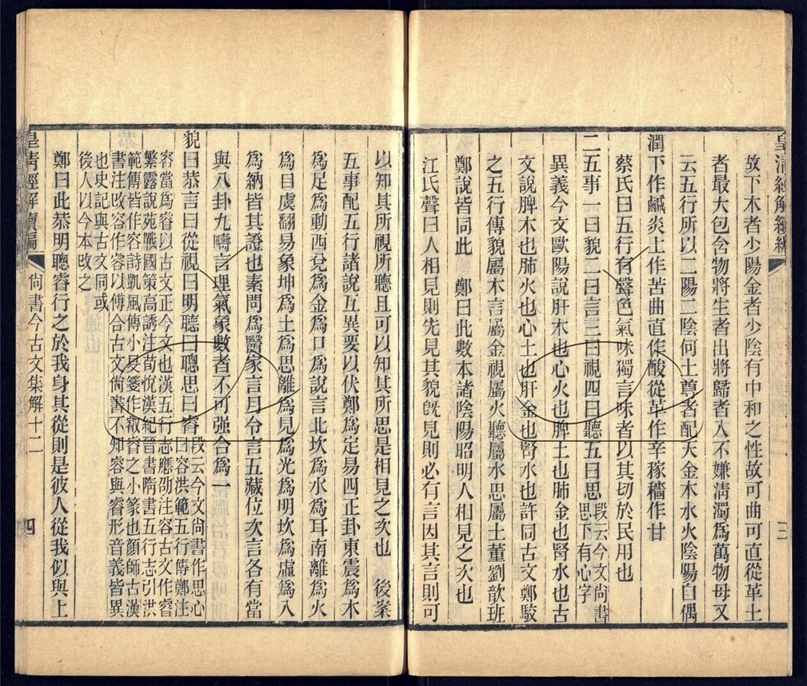 皇清經解續編
故下木者少陽金者少陰有中和之性故可曲可直從革土
者最大包含物將生者出將歸者入不嫌淸濁爲萬物母又
云五行所以二陽二陰何土尊者配天金木水火陰陽自偶
潤下作鹹炎上作苦曲直作酸從革作辛稼穡作甘
蔡氏曰五行有聲色氣味獨言味者以其切於民用也
二五事一曰貌二曰言三曰視四曰聽五曰思
段云今文尚書
思下有心字
異義今文歐陽說肝木也心火也脾土也肺金也腎水也古
文說脾木也肺火也心土也肝金也腎水也許同古文鄭駮
之五行傳貌屬木言屬金視屬火聽屬水思屬土董劉歆班
鄭說皆同此 鄭曰此數本諸陰陽昭明人相見之次也
江氏聲曰人相見則先見其貌旣見則必有言因其言則可
以知其所視所聽且可以知其所思是相見之次也 後案
五事配五行諸說互異要以伏鄭爲定易四正卦東震爲木
爲足爲動西兌爲金爲口爲說言北坎爲水爲耳南離爲火
爲目虞翻易象坤爲土爲思離爲見爲光爲明坎爲虛爲入
爲納皆其證也素問爲醫家言月令言五藏位次言各有當
與八卦九疇言理氣象數者不可强合爲一
貌曰恭言曰從視曰明聽曰聰思曰睿
段云今文尚書作思心
曰容洪範五行傳鄭注
容當爲睿以古文正今文也漢五行志應劭注容古文作睿
繁露說苑戰國策高誘注荀悅漢紀晉書隋書五行志引洪
範傳皆作容詩凱風傳小旻箋作叡睿之小篆也顏師古漢
書注改容作睿以傳合古文尚書不知容與睿形音義皆異
也史記與古文同或
後人以今本改之
鄭曰此恭明聰睿行之於我身其從則是彼人從我似與上
皇清經解續編
尚書今古文集解十二
四